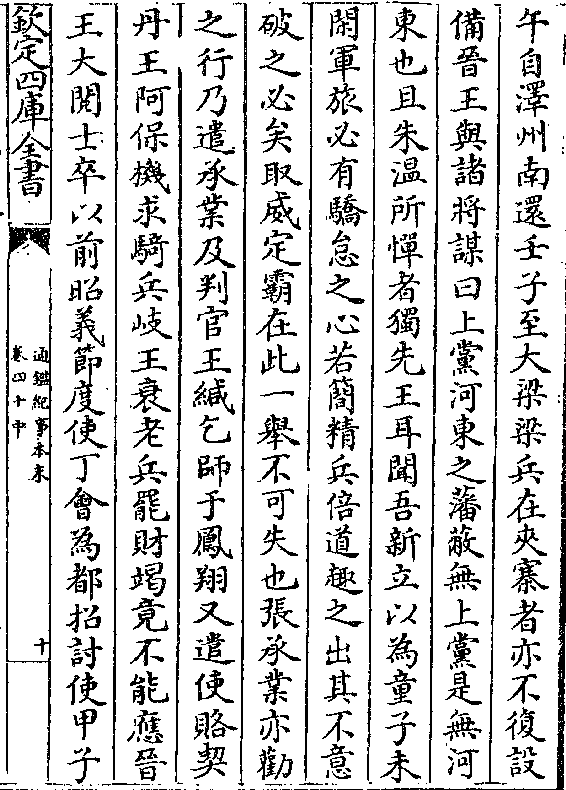 午自澤州南還壬子至大梁梁兵在夾寨者亦不復設
備晉王與諸將謀曰上黨河東之藩蔽無上黨是無河
東也且朱温所憚者獨先王耳聞吾新立以為童子未
閑軍旅必有驕怠之心若簡精兵倍道趣之出其不意
破之必矣取威定霸在此一舉不可失也張承業亦勸
之行乃遣承業及判官王緘乞師于鳳翔又遣使賂契
丹王阿保機求騎兵岐王衰老兵罷財竭竟不能應晉
王大閱士卒以前昭義節度使丁會為都招討使甲子
欽定四庫全書
通鑑紀事本末
卷四十中
十